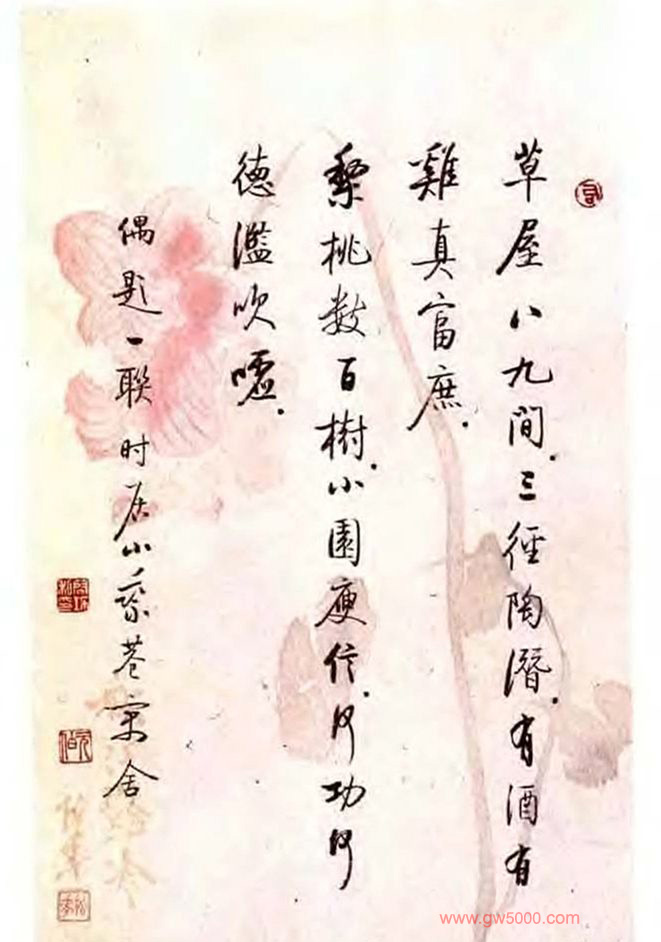 草屋八九间三径陶潜有酒有
鸡真富庶
梨桃数百树小园庾信何功何
德滥吹嘘
偶题一联时居小乘巷寓舍
www.gw5000.com